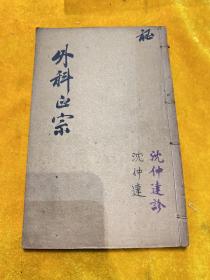 征
外科正宗
沈仲達診
沈仲達